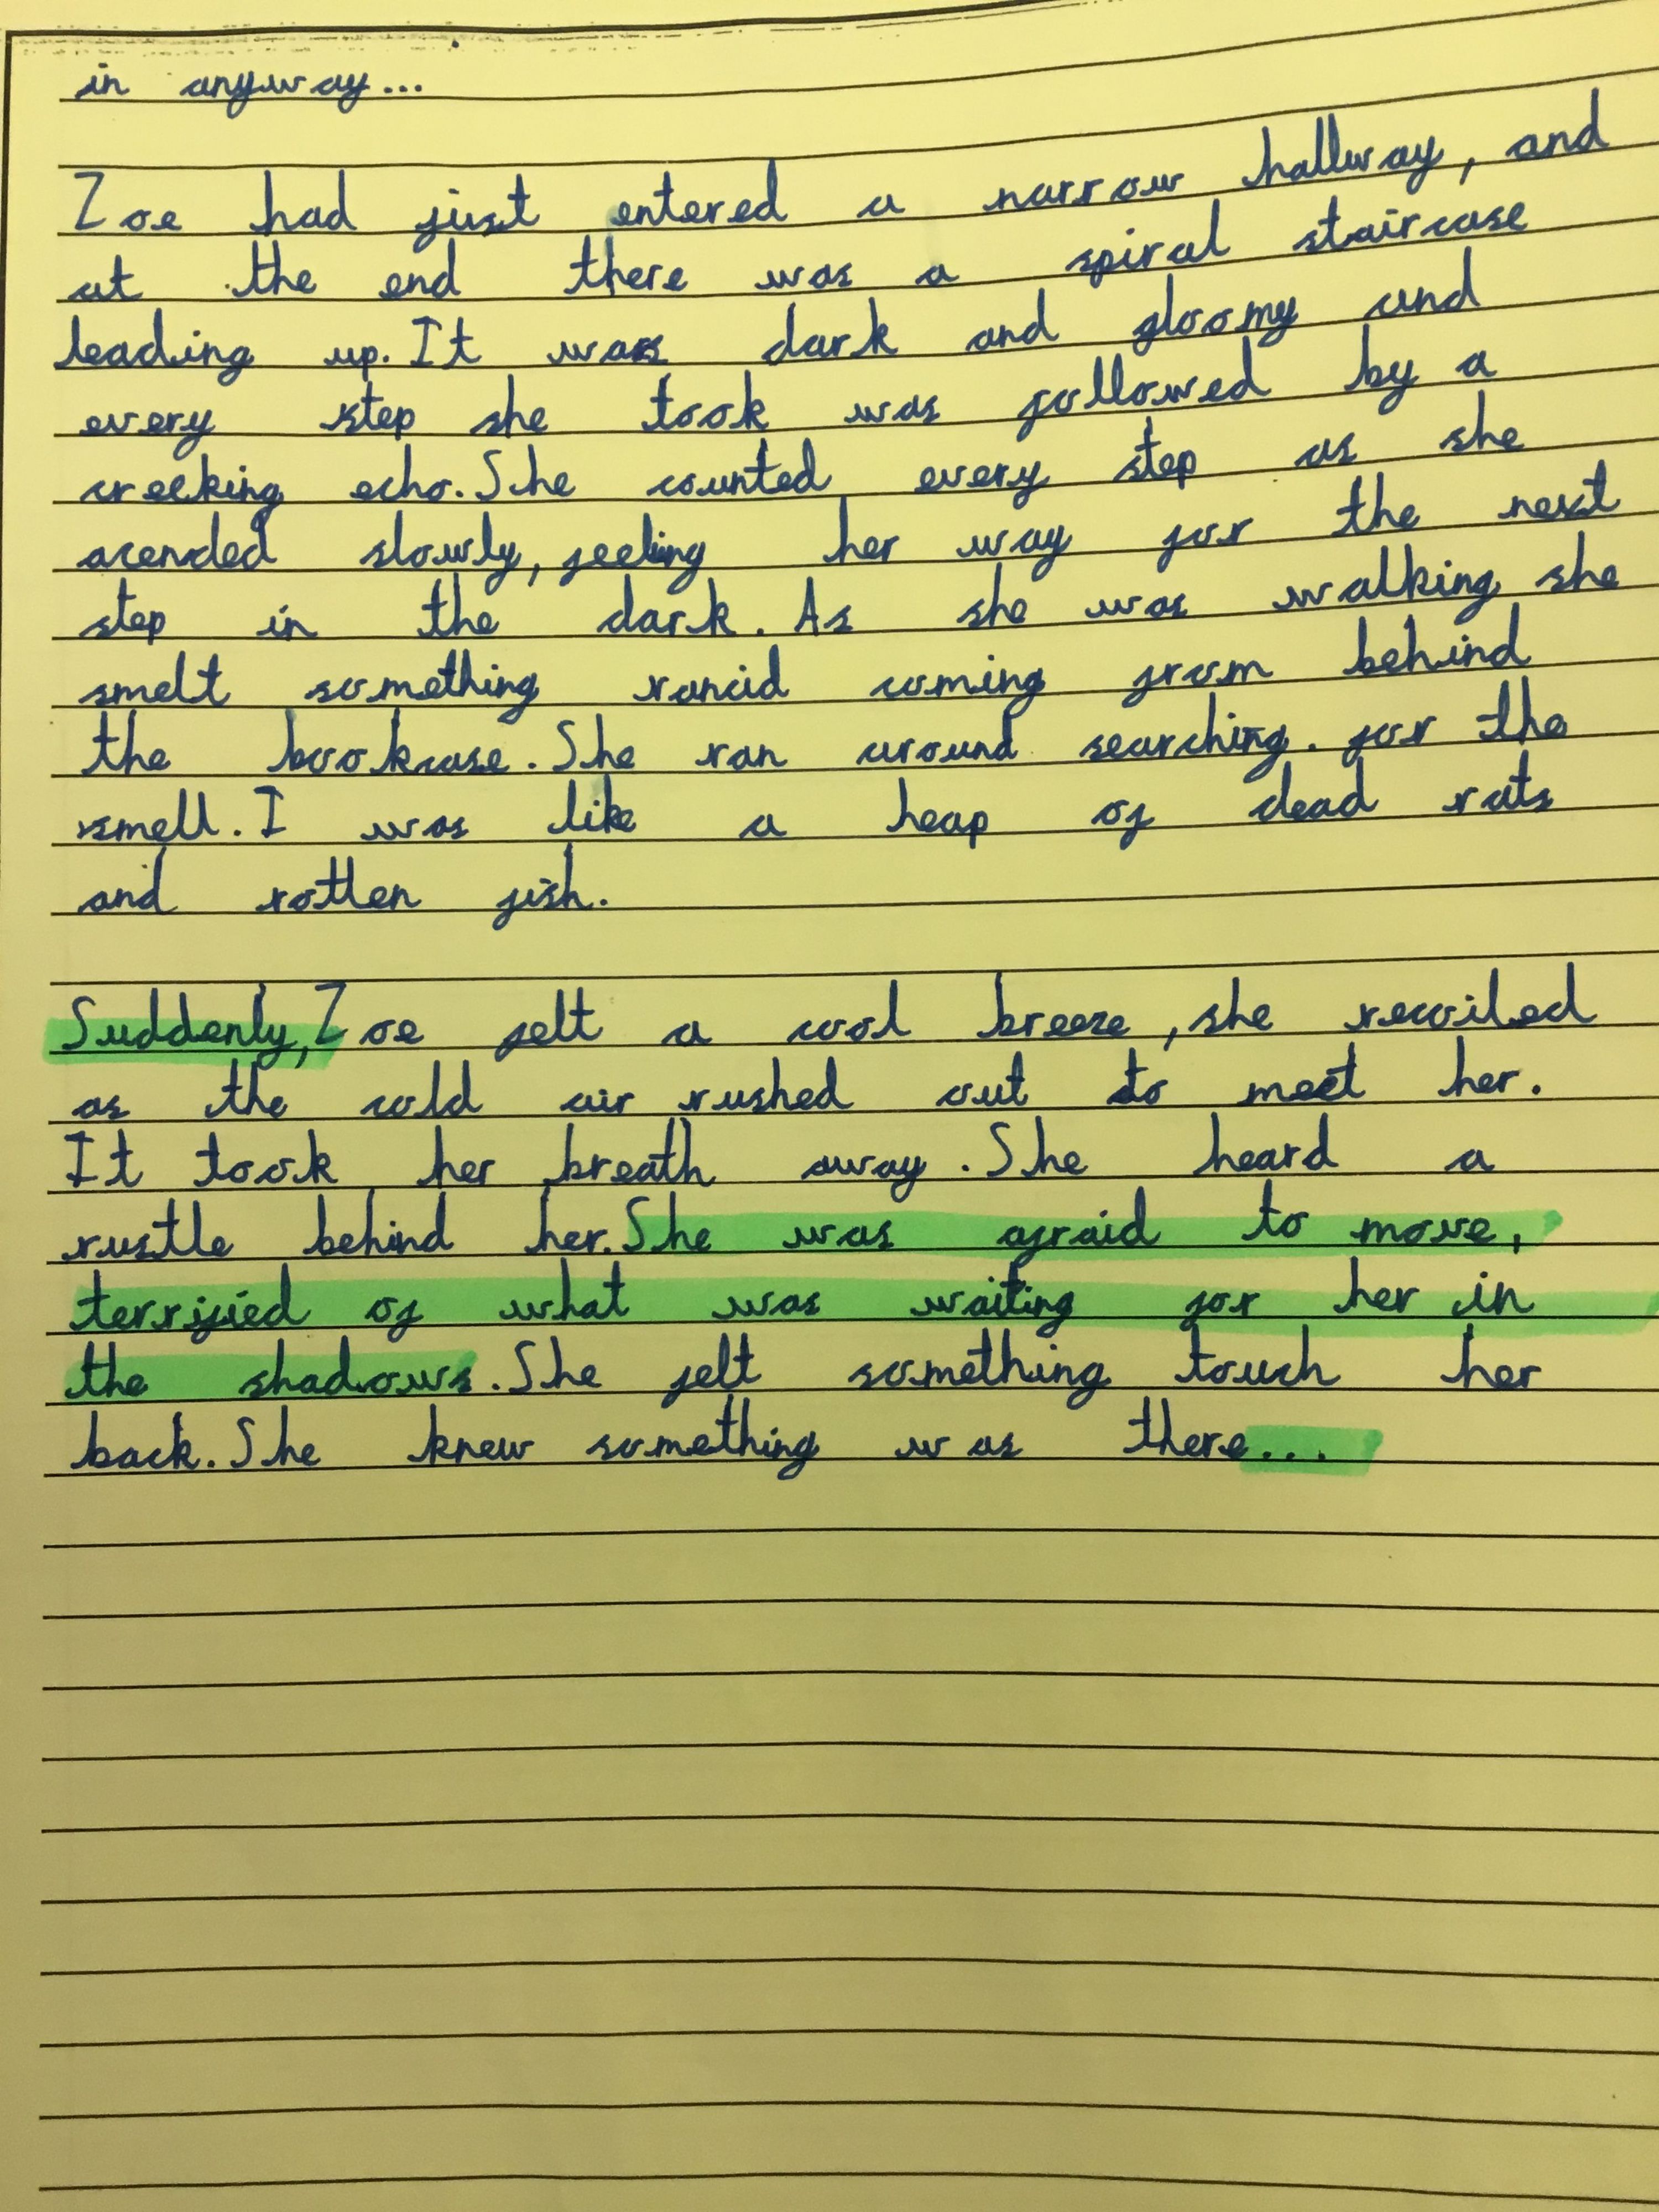 in anyway...
Zoe had just entered a narrow hallway, and
at the end there was a spiral staircase
leading up. It was dark and gloomy and
every step she took was followed by a
creeking echo. She counted every step as she
acended slowly, feeling her way for the next
step in the dark. As she was walking she
smelt something rancid coming from behind
the bookcase. She ran around searching. for the
smell. I was like a heap of dead rats
and rotten fish.
Suddenly, Zoe felt a cool breeze, she recoiled
as the cold air rushed out to meet her.
It took her breath away. She heard a
rustle behind her. She was afraid to move,
terrified of what was waiting for her in
the shadows. She felt something touch her
back. She knew something was there...